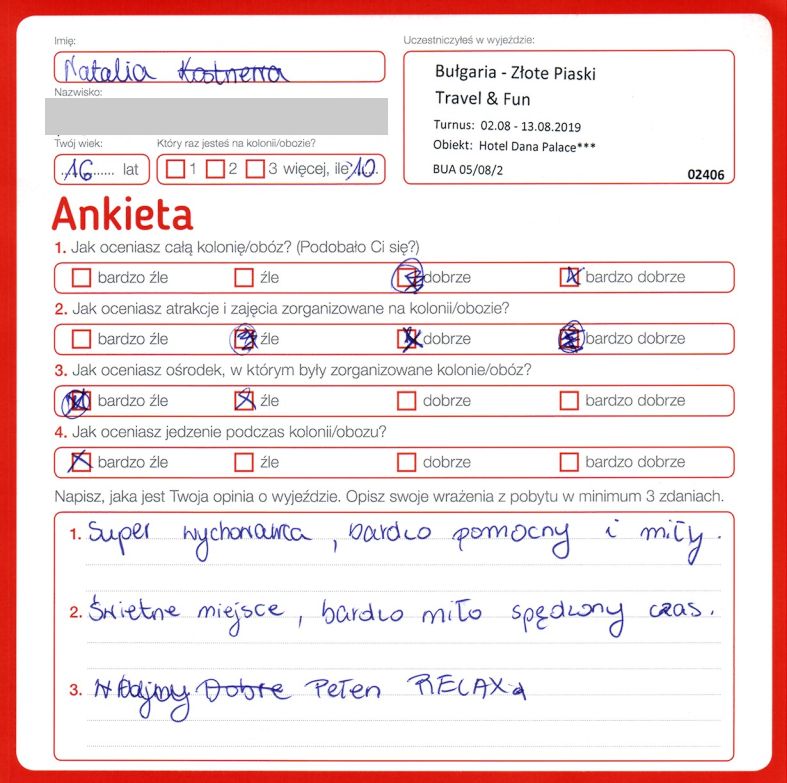 Imię:
Uczestniczyłeś w wyjeździe:
Natalia Kostnerra
Bułgaria - Złote Piaski
Travel & Fun
Nazwisko:
Turnus: 02.08 - 13.08.2019
Obiekt: Hotel Dana Palace***
BUA 05/08/2
02406
Twój wiek:
Który raz jesteś na kolonii/obozie?
16 lat
1 2 3 więcej, ile 10
Ankieta
1. Jak oceniasz całą kolonię/obóz? (Podobało Ci się?)
bardzo źle źle dobrze bardzo dobrze
2. Jak oceniasz atrakcje i zajęcia zorganizowane na kolonii/obozie?
bardzo źle źle dobrze bardzo dobrze
3. Jak oceniasz ośrodek, w którym były zorganizowane kolonie/obóz?
bardzo źle źle dobrze bardzo dobrze
4. Jak oceniasz jedzenie podczas kolonii/obozu?
bardzo źle źle dobrze bardzo dobrze
Napisz, jaka jest Twoja opinia o wyjeździe. Opisz swoje wrażenia z pobytu w minimum 3 zdaniach.
1. Super wychowawca, bardzo pomocny i miły.
2. Świetne miejsce, bardzo miło spędzony czas.
3. Dobre Pełen RELAX